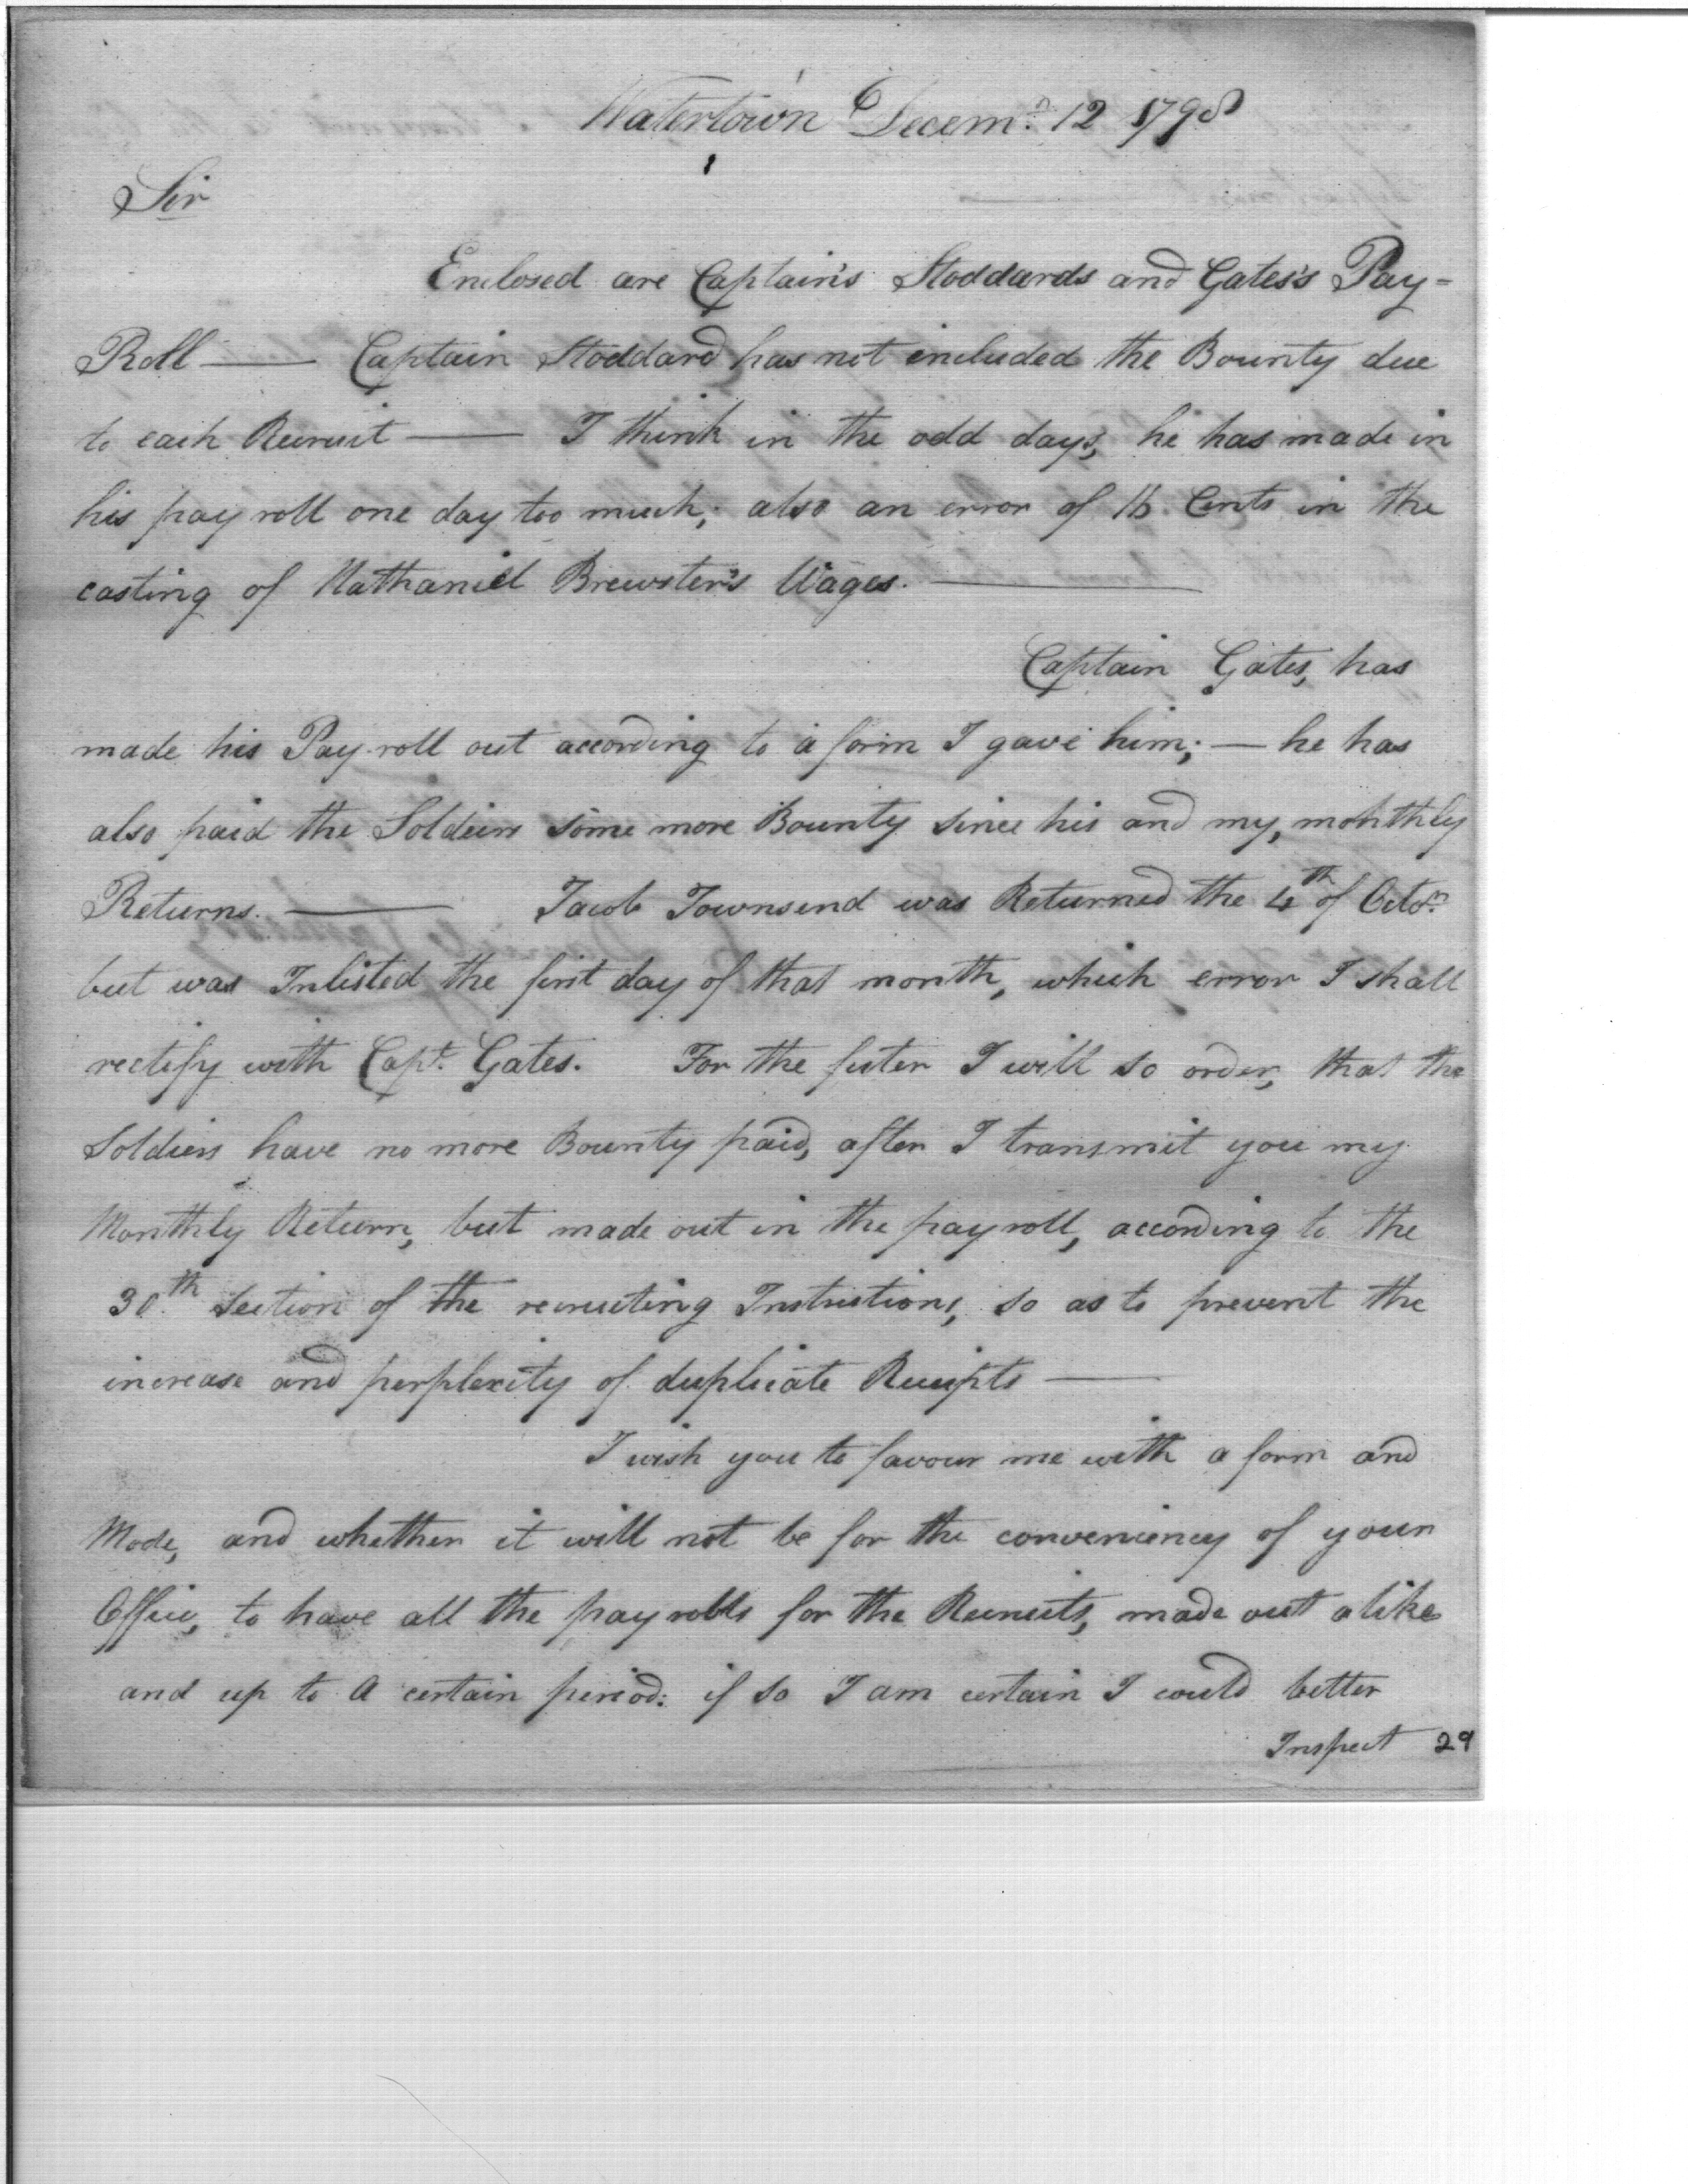 Watertown Decem.r 12 1798
Sir
Enclosed are Captain's Stoddards and Gates's Pay-
Roll — Captain Stoddard has not included the Bounty due
to each Recruit — I think in the odd days, he has made in
his pay roll one day too much; also an error of 16 Cents in the
casting of Nathaniel Brewster's Wages. —
Captain Gates, has
made his Pay-roll out according to a form I gave him; — he has
also paid the Soldiers some more Bounty since his and my, monthly
Returns. — Jacob Townsend was Returned the 4th of Octo.r
but was Inlisted the first day of that month, which error I shall
rectify with Capt. Gates. For the futer I will so order, that the
Soldiers have no more Bounty paid, after I transmit you my
Monthly Return, but made out in the pay roll, according to the
30th Section of the recruiting Instructions, so as to prevent the
increase and perplexity of duplicate Receipts —
I wish you to favour me with a form and
Mode, and whether it will not be for the conveniency of your
Office, to have all the pay rolls for the Recruits, made out alike
and up to a certain period: if so I am certain I could better
Inspect 29